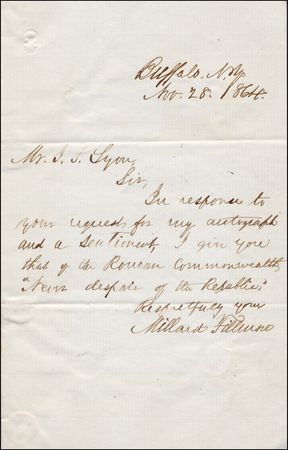 Buffalo, N.Y.
Nov. 28. 1864.
Mr. J. S. Lyon,
Sir,
In response to
your request for my autograph
and a sentiment, I give you
that of the Roman Commonwealth,
"Never despair of the Republic,"
Respectfully yours
Millard Fillmore